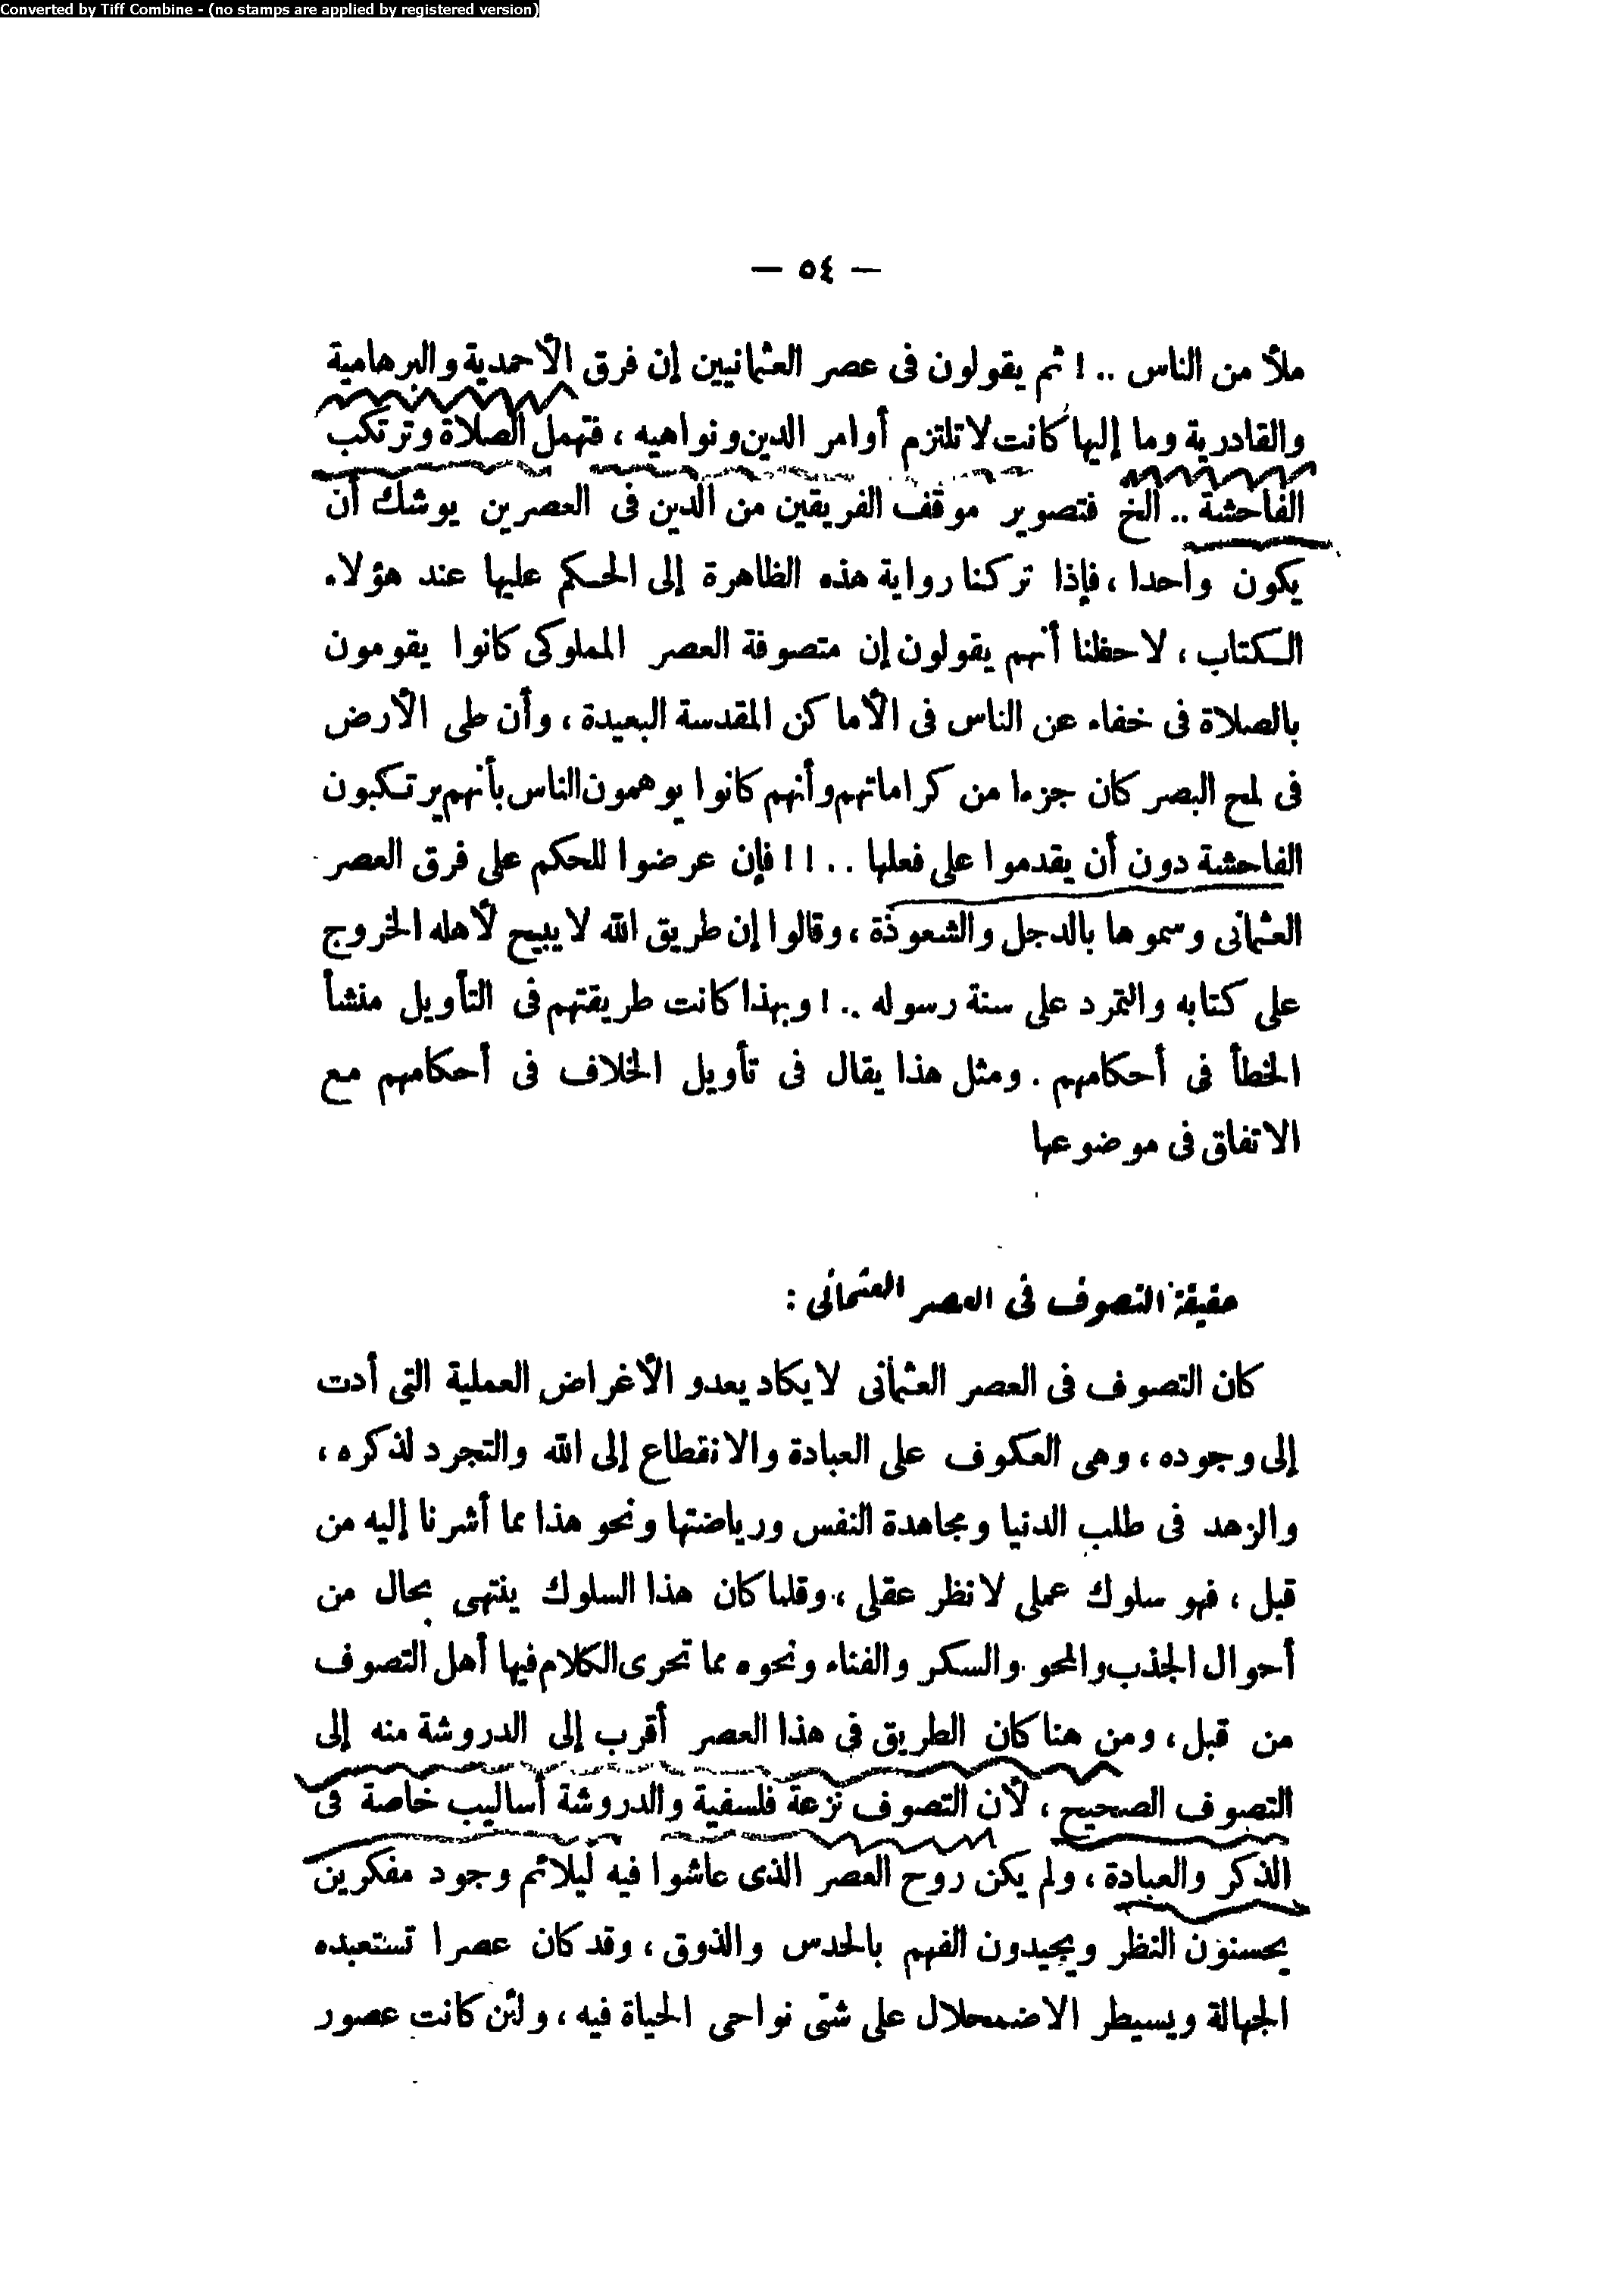 Converted by Tiff Combine - (no stamps are applied by registered version)
— ٥٤ —
ملأ من الناس .. ! ثم يقولون فى عصر العثمانيين إن فرق الأحمدية والبرهامية
والقادرية وما إليها كانت لا تلتزم أوامر الدين ونواهيه ، فتهمل الصلاة وترتكب
الفاحشة .. الخ فتصوير موقف الفريقين من الدين فى العصرين يوشك أن
يكون واحدا ، فإذا تركنا رواية هذه الظاهرة إلى الحكم عليها عند هؤلاء
الكتاب ، لاحظنا أنهم يقولون إن متصوفة العصر المملوكى كانوا يقومون
بالصلاة فى خفاء عن الناس فى الأماكن المقدسة البعيدة ، وأن طى الأرض
فى لمح البصر كان جزءا من كراماتهم وأنهم كانوا يوهمون الناس بأنهم يرتكبون
الفاحشة دون أن يقدموا على فعلها .. ! ! فإن عرضوا للحكم على فرق العصر
العثمانى وسموها بالدجل والشعوذة ، وقالوا إن طريق الله لا يبيح لأهله الخروج
على كتابه والتمرد على سنة رسوله .. ! وبهذا كانت طريقتهم فى التأويل منشأ
الخطأ فى أحكامهم . ومثل هذا يقال فى تأويل الخلاف فى أحكامهم مع
الاتفاق فى موضوعها
حقيقة التصوف فى العصر العثمانى :
كان التصوف فى العصر العثمانى لا يكاد يعدو الأغراض العملية التى أدت
إلى وجوده ، وهى العكوف على العبادة والانقطاع إلى الله والتجرد لذكره ،
والزهد فى طلب الدنيا ومجاهدة النفس ورياضتها ونحو هذا مما أشرنا إليه من
قبل ، فهو سلوك عملى لا نظر عقلى ، وقلما كان هذا السلوك ينتهى بحال من
أحوال الجذب والمحو والسكر والفناء ونحوه مما تحرى الكلام فيها أهل التصوف
من قبل ، ومن هنا كان الطريق فى هذا العصر أقرب إلى الدروشة منه إلى
التصوف الصحيح ، لأن التصوف نزعة فلسفية والدروشة أساليب خاصة فى
الذكر والعبادة ، ولم يكن روح العصر الذى عاشوا فيه ليلائم وجود مفكرين
يحسنون النظر ويجيدون الفهم بالحدس والذوق ، وقد كان عصرا تستعبده
الجهالة ويسيطر الاضمحلال على شتى نواحى الحياة فيه ، ولئن كانت عصور